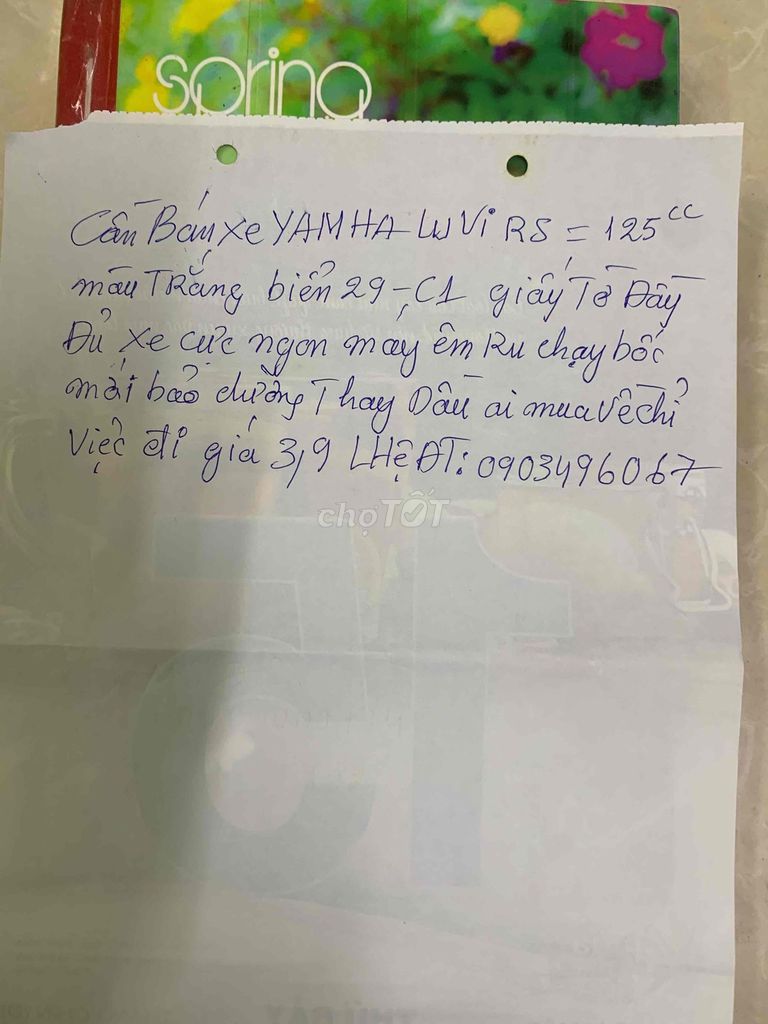 Spring
Cần Bán xe YAMHA LUVI RS = 125cc
màu TRắng biển 29-C1 giấy Tờ Đầy
Đủ xe cực ngon máy êm Ru chạy bốc
mới bảo dưỡng Thay Dầu ai mua về chỉ
Việc đi giá 3,9 LHệ ĐT: 0903496067
chợTỐT